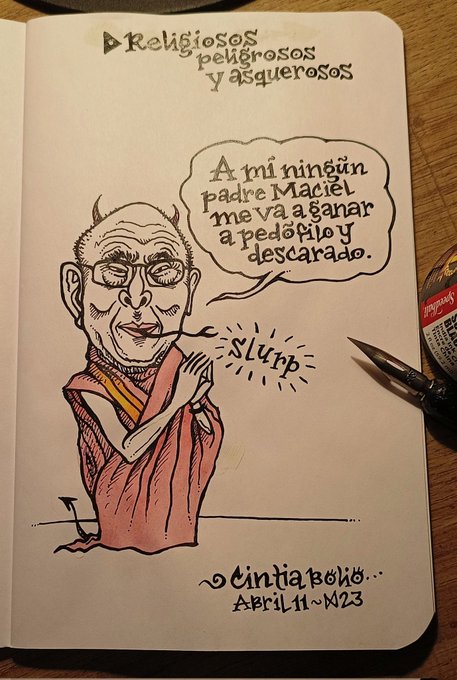 Religiosos
peligrosos
y asquerosos
A mí ningún
padre Maciel
me va a ganar
a pedófilo y
descarado.
slurp
Cintia Bolio...
Abril 11~23
Speedball